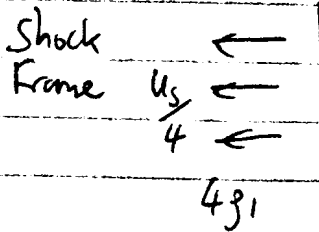 Shock ←
Frame u_s/4 ←
←
4ρ₁